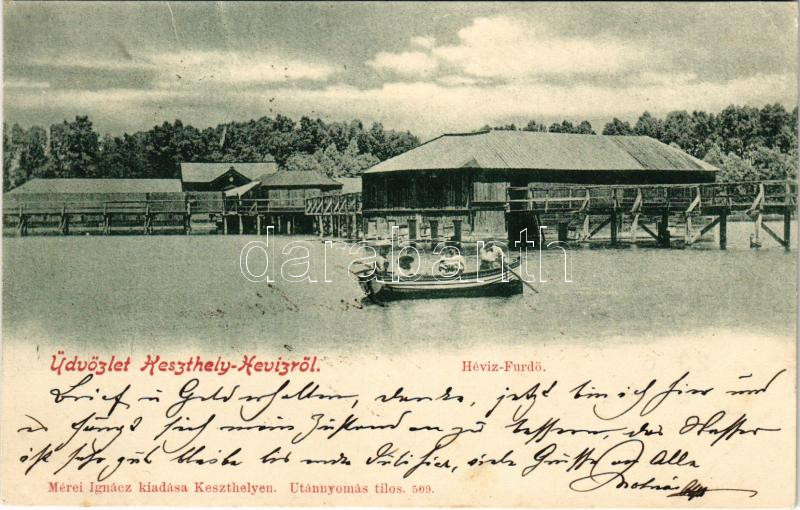 darabanth
Üdvözlet Keszthely-Hevizről.
Héviz-Furdö.
Brief u Geld erhalten, danke, jetzt bin ich hier und
es fängt sich mein Zustand an zu bessern, das Wasser
ist sehr gut bleibe bis ende Juli hier, viele Grüsse an Alle
Mérei Ignácz kiadása Keszthelyen. Utánnyomás tilos. 509.